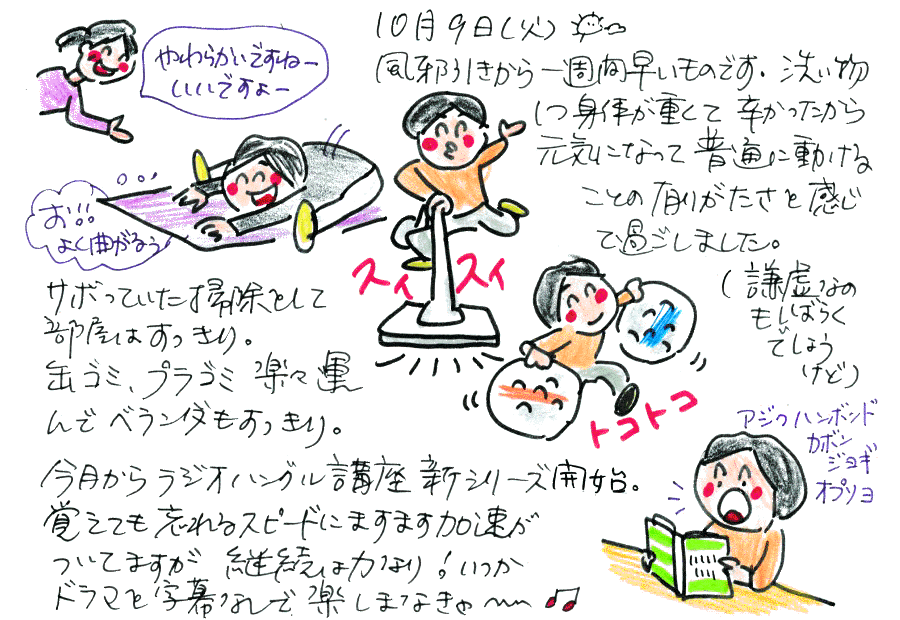 やわらかいですねー
いいですよー
10月9日(火)
風邪引きから一週間早いものです。洗い物
1つ身体が重くて辛かったから
元気になって普通に動ける
ことの有りがたさを感じ
て過ごしました。
(謙虚なの
もしばらく
でしょう
けど)
お!!
よく曲がるぅ
スィ スィ
サボっていた掃除をして
部屋はすっきり。
缶ゴミ、プラゴミ楽々運
んでベランダもすっきり。
トコトコ
アジクハンボンド
カボン
ジョギ
オプソヨ
今月からラジオハングル講座新シリーズ開始。
覚えても忘れるスピードにますます加速が
ついてますが継続は力なり!いつか
ドラマを字幕なしで楽しまなきゃ〜〜♫